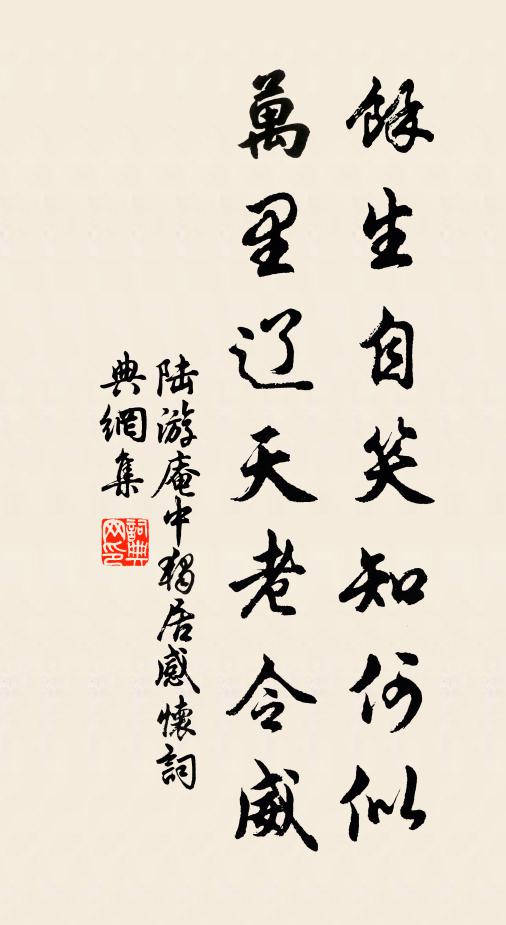 餘生自笑知何似
萬里辽天老令威
陆游庵中獨居感懷詞
典網集
詞典网印